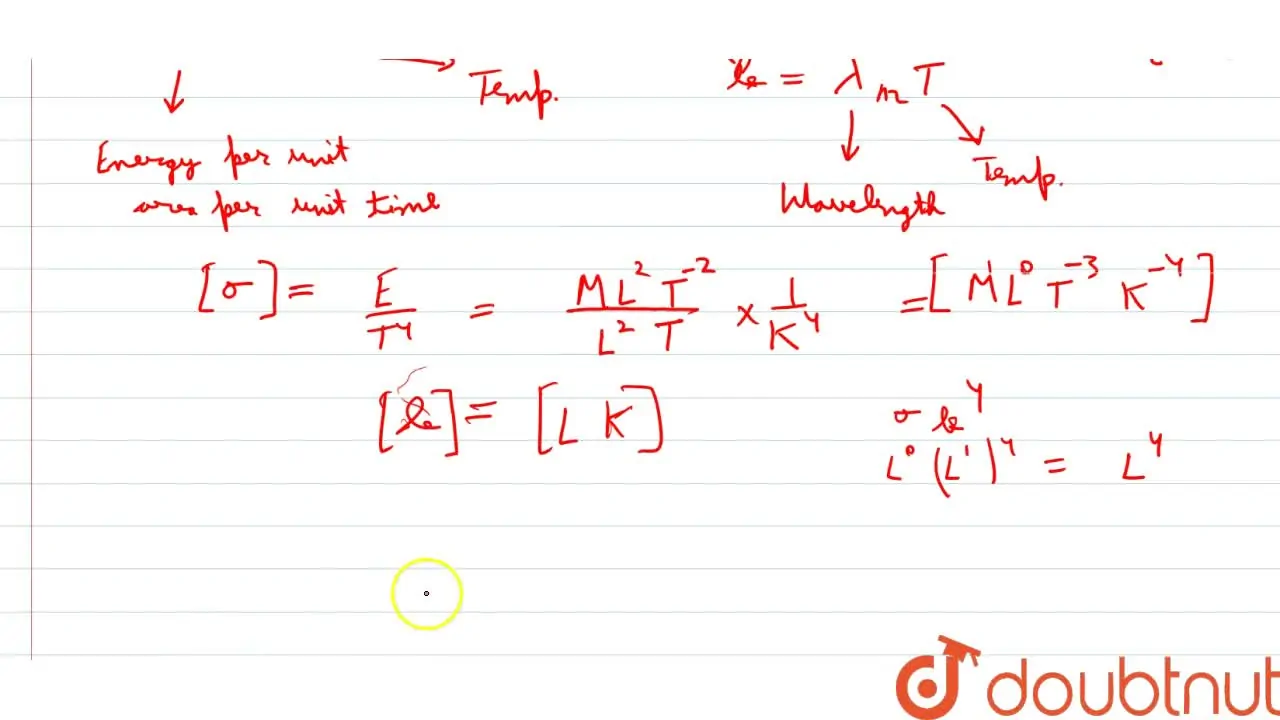 Temp.
b = λ m T
Energy per unit
area per unit time
Temp.
Wavelength
[σ] = E/T⁴ = M L² T⁻² / L² T × 1/K⁴ = [M¹ L⁰ T⁻³ K⁻⁴]
[b] = [L K]
σ b⁴
L⁰ (L¹)⁴ = L⁴
doubtnut